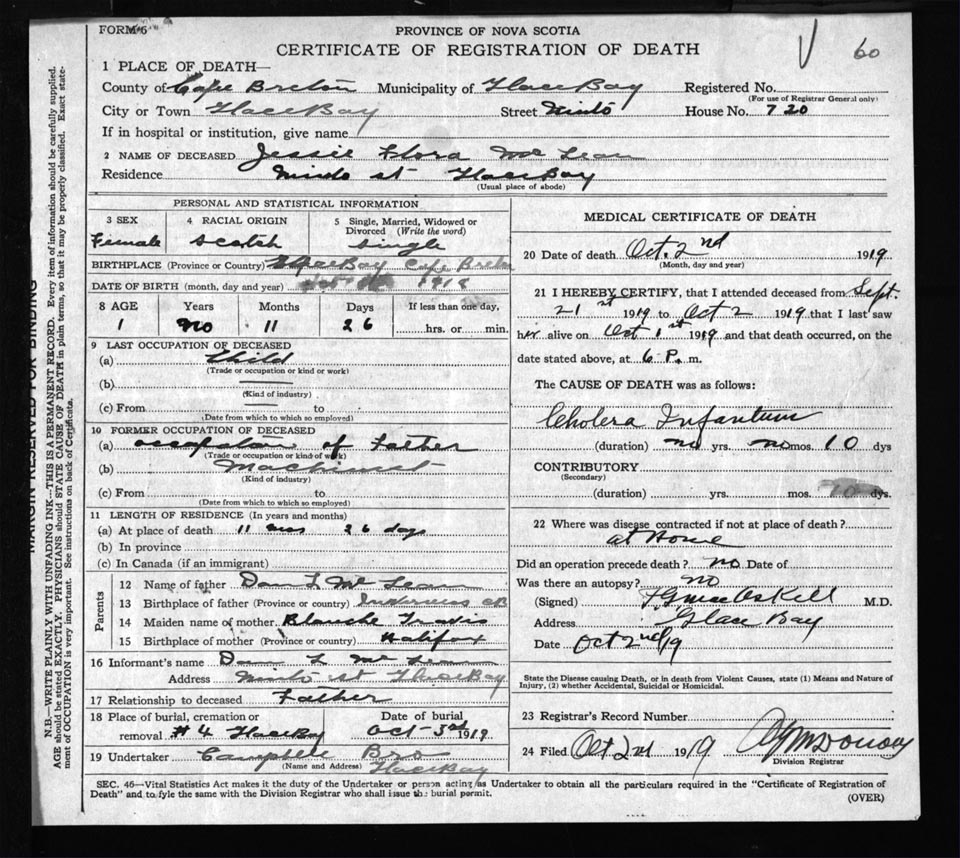 FORM 6
PROVINCE OF NOVA SCOTIA
CERTIFICATE OF REGISTRATION OF DEATH
60
1 PLACE OF DEATH—
County of Cape Breton Municipality of Glace Bay Registered No.
(For use of Registrar General only)
City or Town Glace Bay Street Minto House No. 720
If in hospital or institution, give name
2 NAME OF DECEASED Jessie Flora Mc Lean
Residence Minto st Glace Bay
(Usual place of abode)
PERSONAL AND STATISTICAL INFORMATION
3 SEX Female
4 RACIAL ORIGIN Scotch
5 Single, Married, Widowed or Divorced (Write the word) Single
BIRTHPLACE (Province or Country) Glace Bay Cape Breton
DATE OF BIRTH (month, day and year) 1918
8 AGE Years Months Days If less than one day,
1 no 11 26 hrs. or min.
9 LAST OCCUPATION OF DECEASED
(a) Child
(Trade or occupation or kind or work)
(b)
(Kind of industry)
(c) From to
(Date from which to which employed)
10 FORMER OCCUPATION OF DECEASED
(a) occupation of Father
(Trade or occupation or kind of work)
(b) Machinest
(Kind of industry)
(c) From to
(Date from which to which so employed)
11 LENGTH OF RESIDENCE (In years and months)
(a) At place of death 11 mos 26 days
(b) In province
(c) In Canada (if an immigrant)
Parents
12 Name of father Dan L Mc Lean
13 Birthplace of father (Province or country) Inverness CB
14 Maiden name of mother Blanche Travis
15 Birthplace of mother (Province or country) Halifax
16 Informant's name Dan L Mc Lean
Address Minto st Glace Bay
17 Relationship to deceased Father
18 Place of burial, cremation or removal # 4 Glace Bay
Date of burial Oct 3rd 1919
19 Undertaker Campbell Bro
(Name and Address) Glace Bay
MEDICAL CERTIFICATE OF DEATH
20 Date of death Oct. 2nd 1919
(Month, day and year)
21 I HEREBY CERTIFY, that I attended deceased from Sept.
21st 1919 to Oct 2 1919 that I last saw
her alive on Oct 1st 1919 and that death occurred, on the
date stated above, at 6 P. m.
The CAUSE OF DEATH was as follows:
Cholera Infantum
(duration) no yrs. no mos. 10 dys
CONTRIBUTORY
(Secondary)
(duration) yrs. mos. 10 dys.
22 Where was disease contracted if not at place of death?
at Home
Did an operation precede death? no Date of
Was there an autopsy? no
(Signed) M.D.
Address Glace Bay
Date Oct 2nd/19
State the Disease causing Death, or in death from Violent Causes, state (1) Means and Nature of
Injury, (2) whether Accidental, Suicidal or Homicidal.
23 Registrar's Record Number
24 Filed Oct 2nd 1919
Division Registrar
SEC. 46—Vital Statistics Act makes it the duty of the Undertaker or person acting as Undertaker to obtain all the particulars required in the "Certificate of Registration of
Death" and to fyle the same with the Division Registrar who shall issue the burial permit.
(OVER)
MARGIN RESERVED FOR BINDING
N.B.—WRITE PLAINLY WITH UNFADING INK—THIS IS A PERMANENT RECORD. Every item of information should be carefully supplied.
AGE should be stated EXACTLY. PHYSICIANS should STATE CAUSE OF DEATH in plain terms, so that it may be properly classified. Exact state-
ment of OCCUPATION is very important. See instructions on back of Certificate.